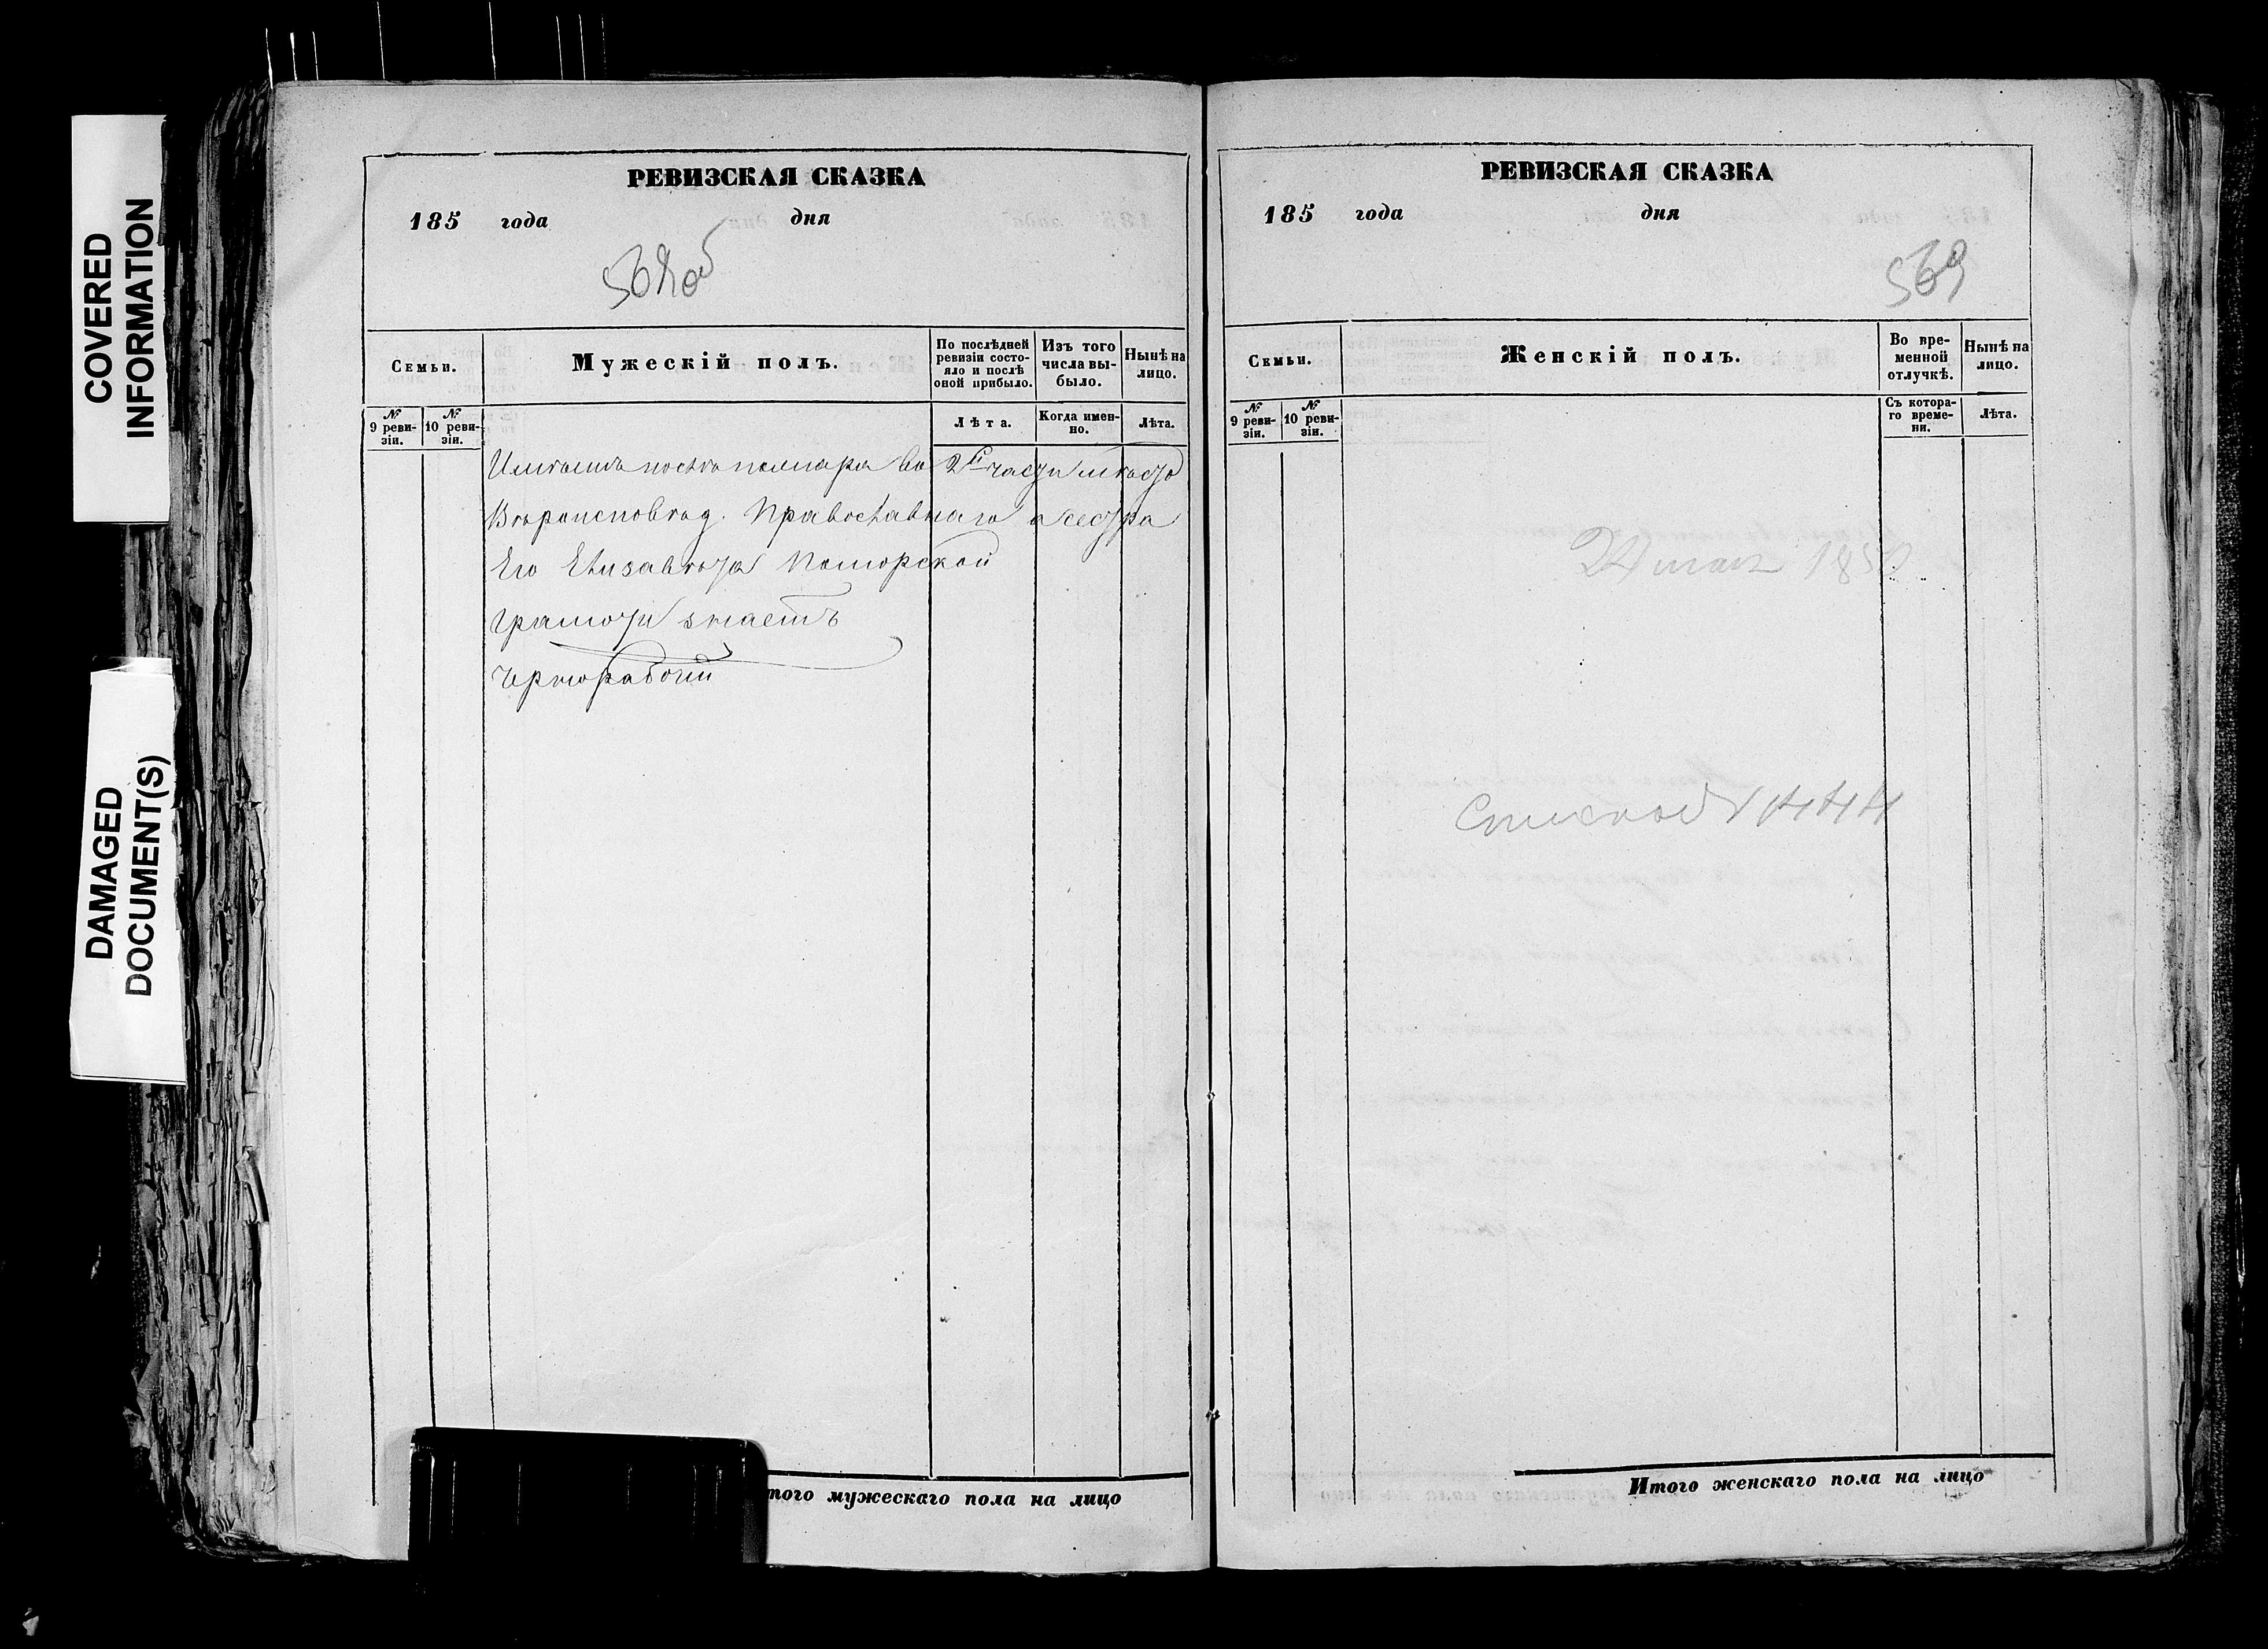 COVERED
INFORMATION
DAMAGED
DOCUMENT(S)
РЕВИЗСКАЯ СКАЗКА
185 года дня
568об
Семьи.
Мужескій полъ.
По послѣдней ревизіи состояло и послѣ оной прибыло.
Изъ того числа выбыло.
Нынѣ на лицо.
№ 9 ревизіи.
№ 10 ревизіи.
Лѣта.
Когда именно.
Лѣта.
во 2й части
Вѣроисповѣд. Православнаго а сестра
Его Елизавета
грамоти знаетъ
Чернорабочій
того мужескаго пола на лицо
РЕВИЗСКАЯ СКАЗКА
185 года дня
569
Семьи.
Женскій полъ.
Во временной отлучкѣ.
Нынѣ на лицо.
№ 9 ревизіи.
№ 10 ревизіи.
Съ котораго времени.
Лѣта.
24 мая 185
Итого женскаго пола на лицо